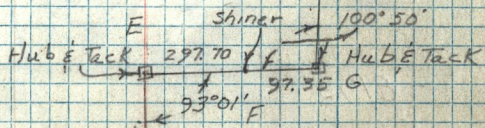 E Shiner 100°50'
Hub & Tack 297.70 Hub & Tack
97.35 G
93°01' F